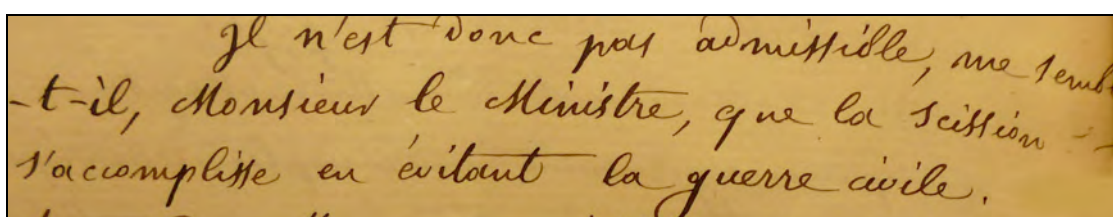 Il n'est donc pas admissible, me semble
-t-il, Monsieur le Ministre, que la scission
s'accomplisse en évitant la guerre civile.